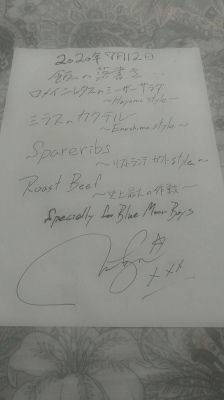 2020年7月12日
飯への落書き
ロメインレタスのシーザーサラダ
~Hayama style~
シラスのカクテル
~Enoshima style~
Spareribs
style~
Roast Beef
~史上最大の作戦~
Specially for Blue Moon Boys
xxx